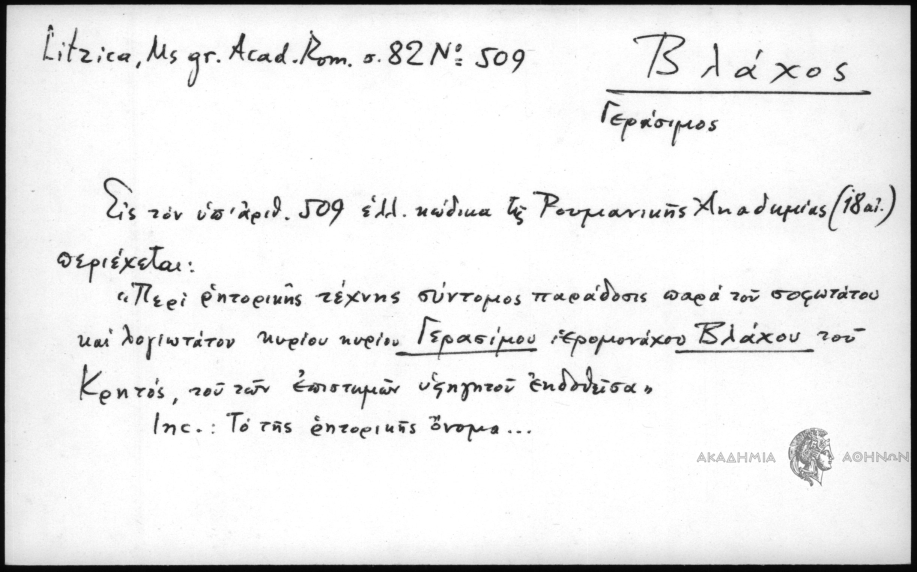 Litzica, Ms gr. Acad. Rom. σ. 82 Nº 509
Βλάχος
Γεράσιμος
Εἰς τὸν ὑπ' ἀριθ. 509 ἑλλ. κώδικα τῆς Ρουμανικῆς Ἀκαδημίας (18 αἰ.)
περιέχεται:
«Περὶ ῥητορικῆς τέχνης σύντομος παράδοσις παρὰ τοῦ σοφωτάτου
καὶ λογιωτάτου κυρίου κυρίου Γερασίμου ἱερομονάχου Βλάχου τοῦ
Κρητός, τοῦ τῶν ἐπιστημῶν ὑφηγητοῦ ἐκδοθεῖσα»
Inc.: Τὸ τῆς ῥητορικῆς ὄνομα...
ΑΚΑΔΗΜΙΑ ΑΘΗΝΩΝ